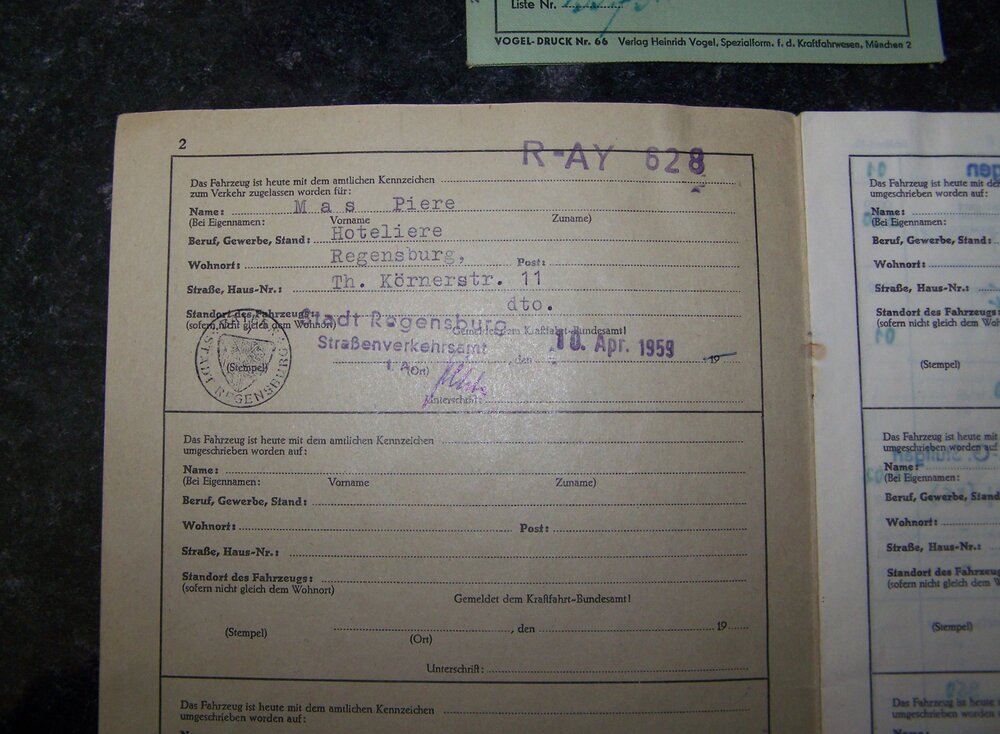 Liste Nr.
VOGEL-DRUCK Nr. 66 Verlag Heinrich Vogel, Spezialform. f. d. Kraftfahrwesen, München 2
2
R-AY 628
Das Fahrzeug ist heute mit dem amtlichen Kennzeichen
zum Verkehr zugelassen worden für:
Name: Mas Piere
(Bei Eigennamen: Vorname Zuname)
Beruf, Gewerbe, Stand: Hoteliere
Wohnort: Regensburg, Post:
Straße, Haus-Nr.: Th. Körnerstr. 11
Standort des Fahrzeugs: dto.
(sofern nicht gleich dem Wohnort)
Stadt Regensburg Gemeldet dem Kraftfahrt-Bundesamt!
Straßenverkehrsamt , den 10. Apr. 1959 19
(Stempel) (Ort)
STADT REGENSBURG
Unterschrift:
Das Fahrzeug ist heute mit dem amtlichen Kennzeichen
umgeschrieben worden auf:
Name:
(Bei Eigennamen: Vorname Zuname)
Beruf, Gewerbe, Stand:
Wohnort: Post:
Straße, Haus-Nr.:
Standort des Fahrzeugs:
(sofern nicht gleich dem Wohnort)
Gemeldet dem Kraftfahrt-Bundesamt!
, den 19
(Stempel) (Ort)
Unterschrift:
Das Fahrzeug ist heute mit dem amtlichen Kennzeichen
umgeschrieben worden auf:
Das Fahrzeug ist heute mit de
umgeschrieben worden auf:
Name:
(Bei Eigennamen:
Beruf, Gewerbe, Stand:
Wohnort:
Straße, Haus-Nr.:
Standort des Fahrzeugs
(sofern nicht gleich dem Wo
(Stempel)
Das Fahrzeug ist heute mit
umgeschrieben worden auf
Name:
(Bei Eigennamen:
Beruf, Gewerbe, Stand
Wohnort:
Straße, Haus-Nr.:
Standort des Fahrzeug
(sofern nicht gleich dem W
(Stempel)
Das Fahrzeug ist heute m
umgeschrieben worden